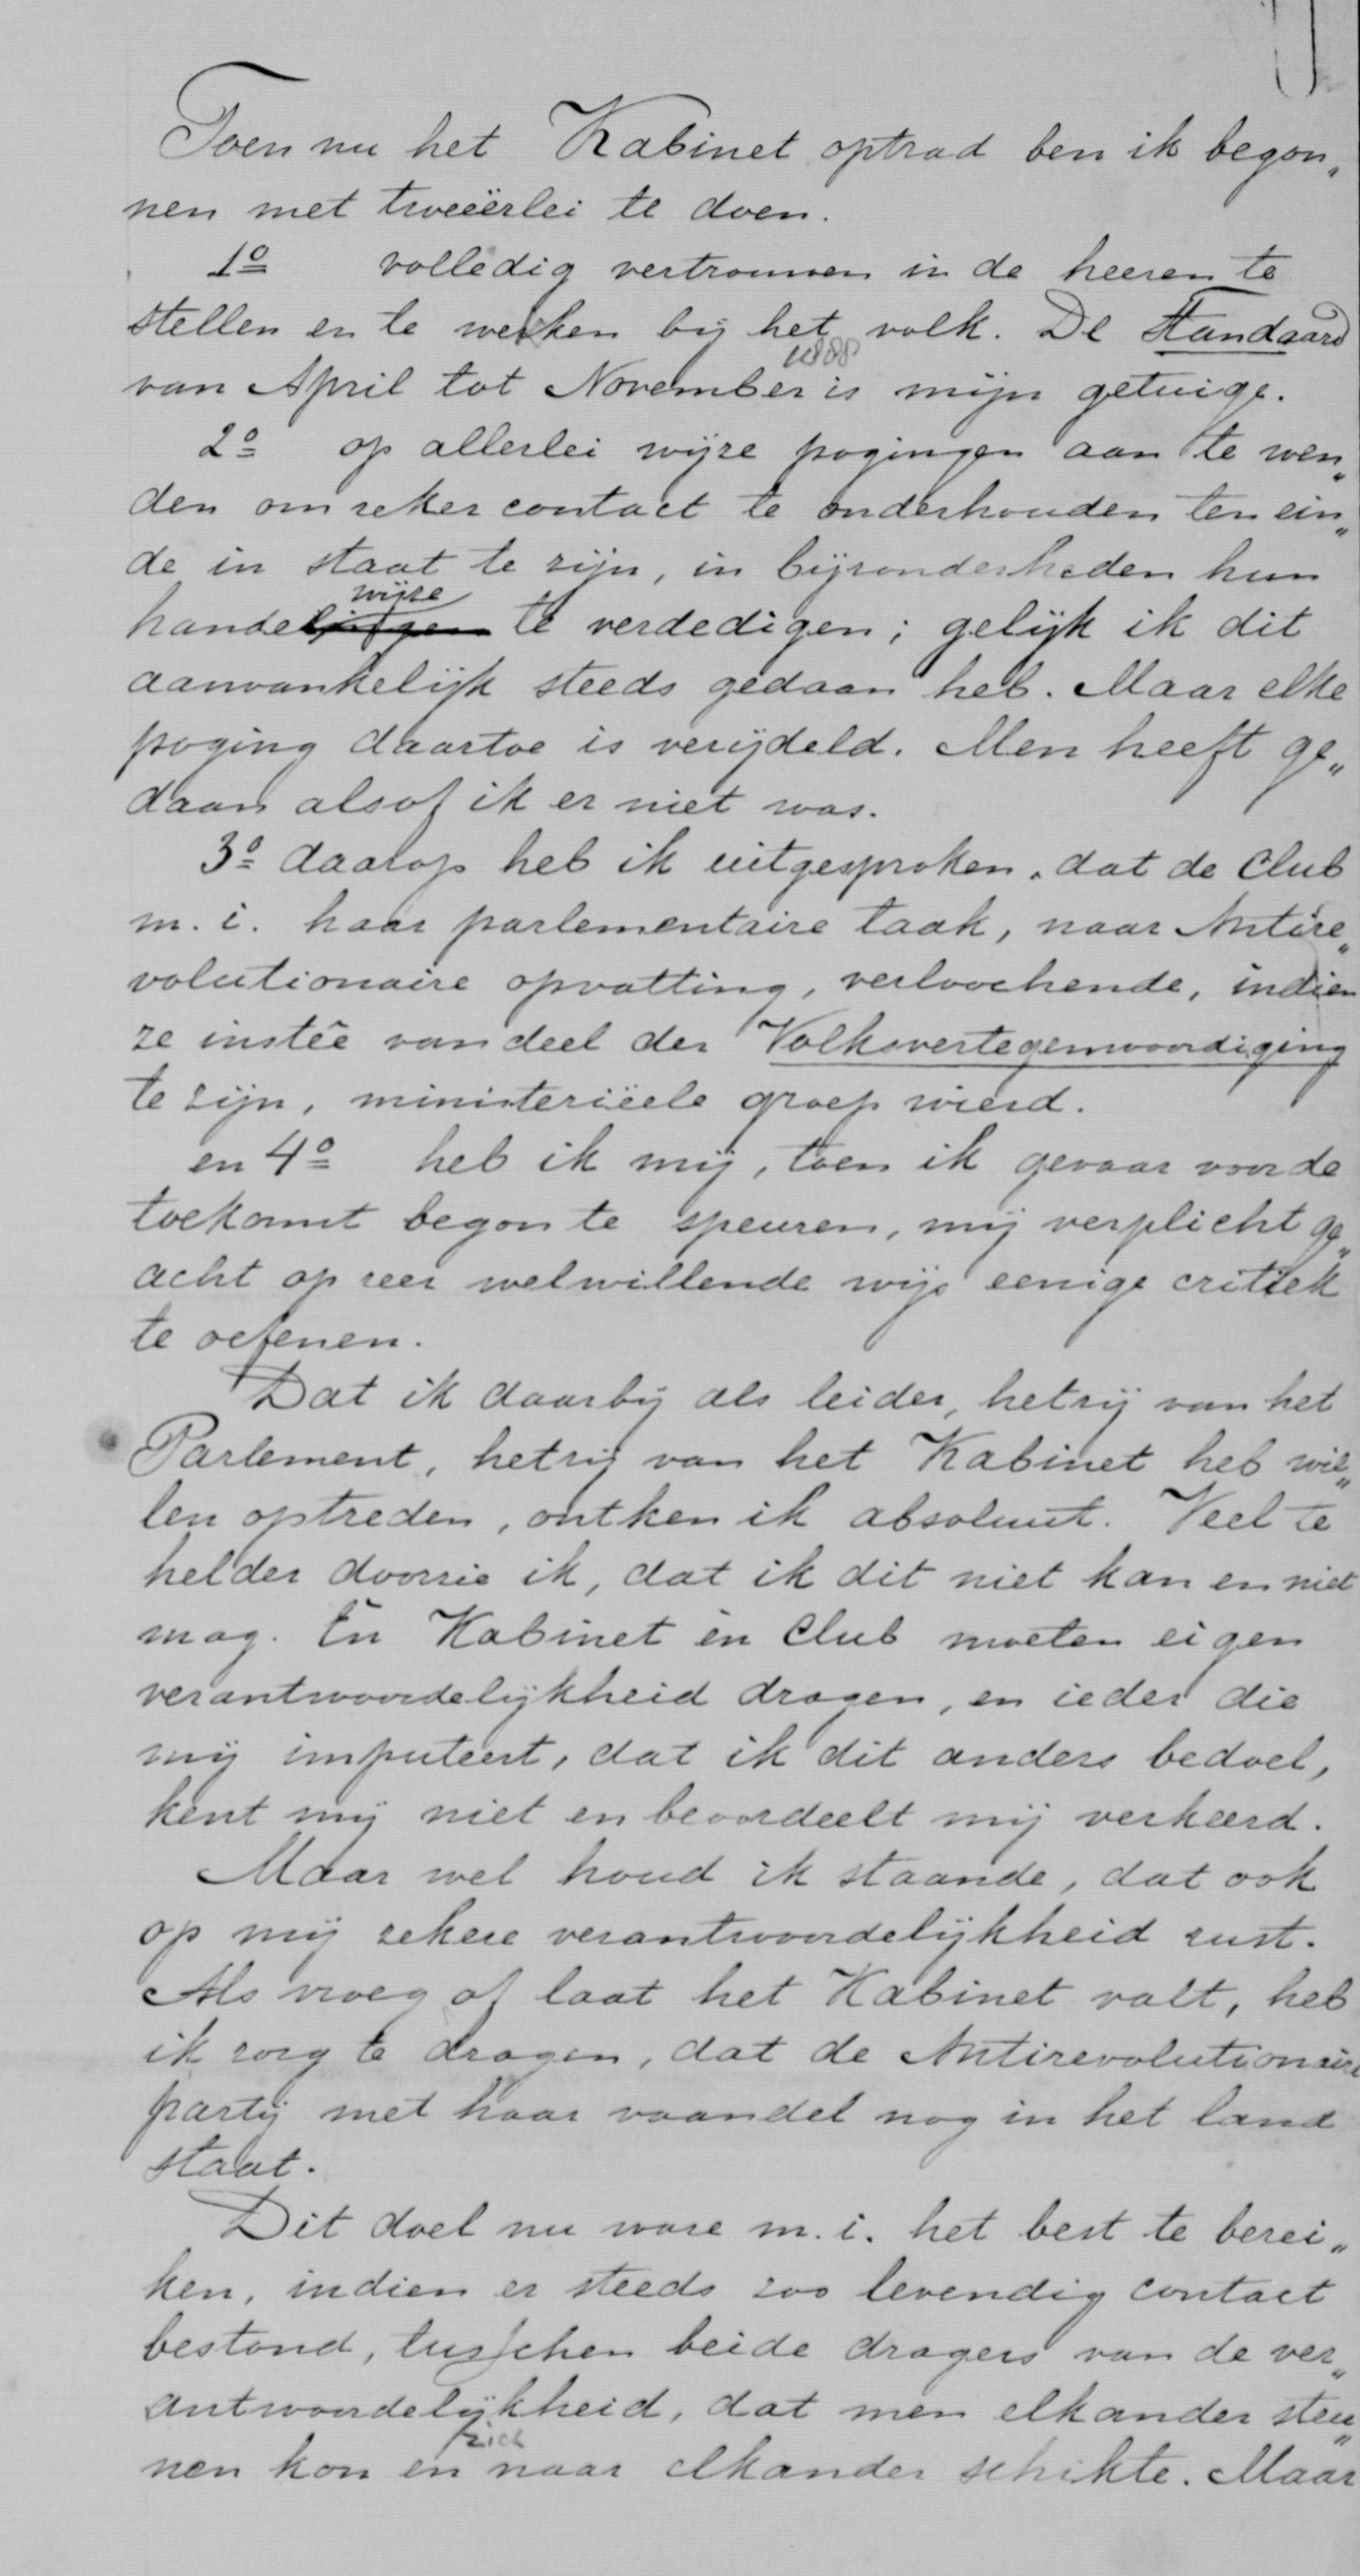 Toen nu het Kabinet optrad ben ik begon„
nen met tweeërlei te doen.
1º volledig vertrouwen in de heeren te
stellen en te werken bij het volk. De Standaard
1888
van April tot November is mijn getuige.
2º op allerlei wijze pogingen aan te wen„
den om zeker contact te onderhouden ten ein„
de in staat te zijn, in bijzonderheden hun
wijze
handelingen te verdedigen; gelijk ik dit
aanvankelijk steeds gedaan heb. Maar elke
poging daartoe is verijdeld. Men heeft ge„
daan alsof ik er niet was.
3º daarop heb ik uitgesproken, dat de Club
m. i. haar parlementaire taak, naar Antire„
volutionaire opvatting, verloochende, indien
ze instêe van deel der Volksvertegenwoordiging
te zijn, ministeriëele groep wierd.
en 4º heb ik mij, toen ik gevaar voor de
toekomt begon te speuren, mij verplicht ge„
acht op zeer welwillende wijs eenige critiek
te oefenen.
Dat ik daarbij als leider, hetzij van het
Parlement, hetzij van het Kabinet heb wil„
len optreden, ontken ik absoluut. Veel te
helder doorzie ik, dat ik dit niet kan en niet
mag. Én Kabinet èn Club moeten eigen
verantwoordelijkheid dragen, en ieder die
mij imputeert, dat ik dit anders bedoel,
kent mij niet en beoordeelt mij verkeerd.
Maar wel houd ik staande, dat ook
op mij zekere verantwoordelijkheid rust.
Als vroeg of laat het Kabinet valt, heb
ik zorg te dragen, dat de Antirevolutionaire
partij met haar vaandel nog in het land
staat.
Dit doel nu ware m. i. het best te berei„
ken, indien er steeds zoo levendig contact
bestond, tusschen beide dragers van de ver„
antwoordelijkheid, dat men elkander steu„
zich
nen kon en naar elkander schikte. Maar